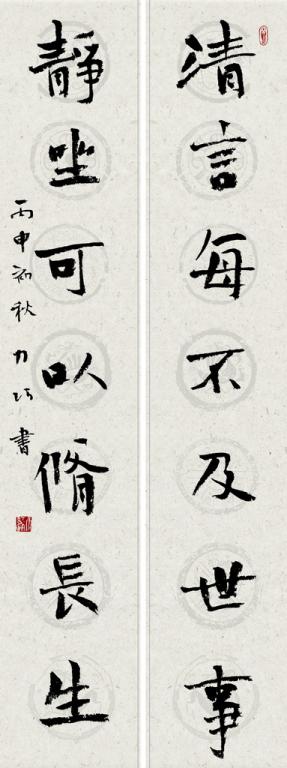 清言每不及世事
靜坐可以脩長生
丙申初秋力巧書